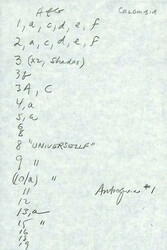 Afro Colombia
1, a, c, d, e, f
2, a, c, d, e, f
3 (x2, shades)
3f
3A, C
4, a
5, a
6
8
8 "UNIVERSELLE"
9 "
(10/a) "
11 Antioquia #1
12
13, a
15 "
16